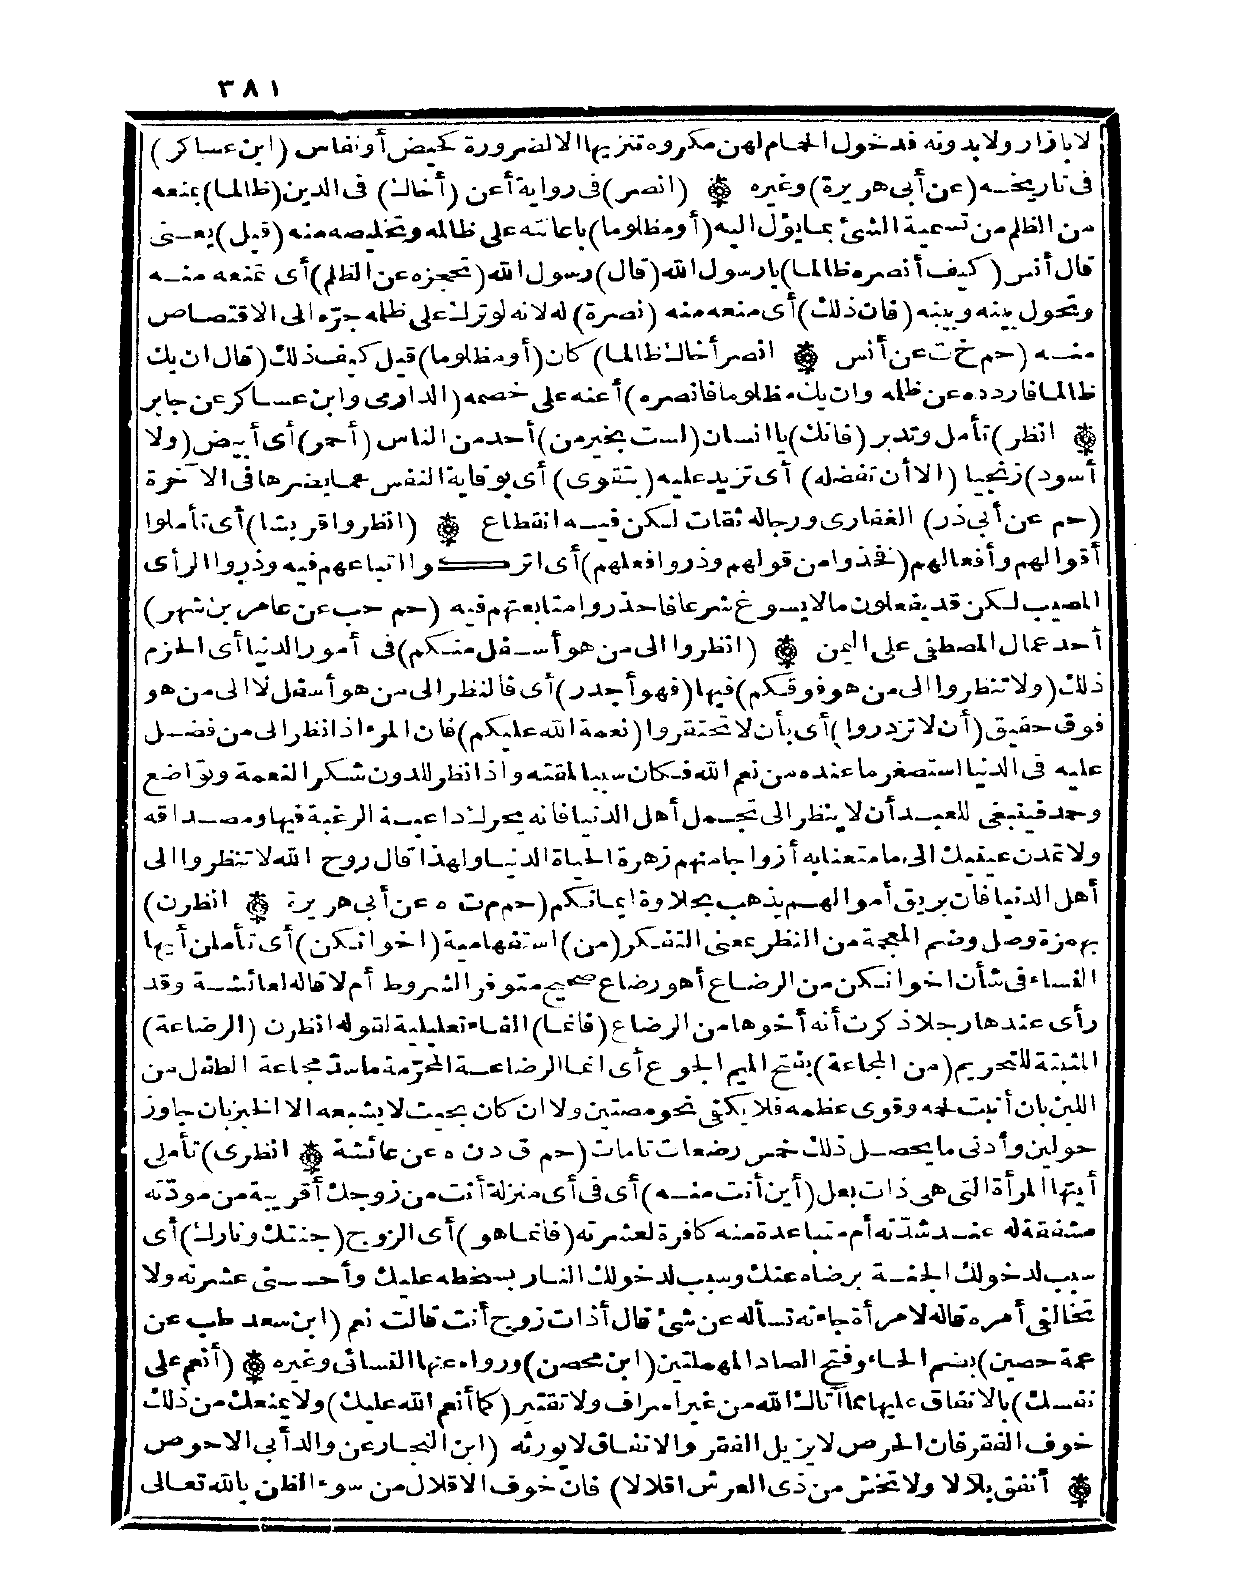 ٣٨١
لا بازار ولا بدونه فدخول الحمام لهن مكروه تنزيها الا لضرورة كحيض أو نفاس (ابن عساكر)
فى تاريخه (عن أبى هريرة) وغيره ۞ (انصر) فى رواية أعن (أخاك) فى الدين (ظالما) بمنعه
من الظلم من تسمية الشئ بما يؤل اليه (أو مظلوما) باعانته على ظالمه وتخليصه منه (قيل) يعنى
قال أنس (كيف أنصره ظالما) يا رسول الله (قال) رسول الله (تحجزه عن الظلم) أى تمنعه منه
وتحول بينه وبينه (فان ذلك) أى منعه منه (نصرة) له لانه لو ترك على ظلمه جره الى الاقتصاص
منه (حم خ ت عن أنس ۞ انصر أخاك ظالما) كان (أو مظلوما) قيل كيف ذلك (قال ان يك
ظالما فاردده عن ظلمه وان يك مظلوما فانصره) أعنه على خصمه (الدارى وابن عساكر عن جابر
۞ انظر) تأمل وتدبر (فانك) يا انسان (لست بخير من) أحد من الناس (أحمر) أى أبيض (ولا
أسود) زنجيا (الا أن تفضله) أى تزيد عليه (بتقوى) أى بوقاية النفس عما يضرها فى الآخرة
(حم عن أبى ذر) الغفارى ورجاله ثقات لكن فيه انقطاع ۞ (انظروا قريشا) أى تأملوا
أقوالهم وأفعالهم (فخذوا من قولهم وذروا فعلهم) أى اتركوا اتباعهم فيه وذروا الرأى
المصيب لكن قد يفعلون ما لا يسوغ شرعا فاحذروا متابعتهم فيه (حم حب عن عامر بن شهر)
أحد عمال المصطفى على اليمن ۞ (انظروا الى من هو أسفل منكم) فى أمور الدنيا أى الحزم
ذلك (ولا تنظروا الى من هو فوقكم) فيها (فهو أجدر) أى فالنظر الى من هو أسفل لا الى من هو
فوق حقيق (أن لا تزدروا) أى بأن لا تحتقروا (نعمة الله عليكم) فان المرء اذا نظر الى من فضل
عليه فى الدنيا استصغر ما عنده من نعم الله فكان سببا لمقته واذا نظر للدون شكر النعمة وتواضع
وحمد فينبغى للعبد أن لا ينظر الى تجمل أهل الدنيا فانه يحرك داعية الرغبة فيها ومصداقه
ولا تمدن عينيك الى ما متعنا به أزواجا منهم زهرة الحياة الدنيا ولهذا قال روح الله لا تنظروا الى
أهل الدنيا فان بريق أموالهم يذهب بحلاوة ايمانكم (حم م ت ه عن أبى هريرة ۞ انظرن)
بهمزة وصل وضم المعجمة من النظر بمعنى التفكر (من) استفهامية (اخوانكن) أى تأملن أيها
النساء فى شأن اخوانكن من الرضاع أهو رضاع صحيح متوفر الشروط أم لا قاله لعائشة وقد
رأى عندها رجلا ذكرت أنه أخوها من الرضاع (فانما) الفاء تعليلية لقوله انظرن (الرضاعة)
المثبتة للتحريم (من المجاعة) بفتح الميم الجوع أى انما الرضاعة المحرمة ما سد مجاعة الطفل من
اللبن بان أنبت لحمه وقوى عظمه فلا يكفى نحو مصتين ولا ان كان بحيث لا يشبعه الا الخبز بان جاوز
حولين وأدنى ما يحصل ذلك خمس رضعات تامات (حم ق د ن ه عن عائشة ۞ انظرى) تأملى
أيتها المرأة التى هى ذات بعل (أين أنت منه) أى فى أى منزلة أنت من زوجك أقريبة من مودته
مشفقة له عند شدته أم متباعدة منه كافرة لعشرته (فانما هو) أى الزوج (جنتك ونارك) أى
سبب لدخولك الجنة برضاه عنك وسبب لدخولك النار بسخطه عليك وأحسنى عشرته ولا
تخالفى أمره قاله لامرأة جاءته تسأله عن شئ قال أذات زوج أنت قالت نعم (ابن سعد طب عن
عمة حصين) بضم الحاء وفتح الصاد المهملتين (ابن محصن) ورواه عنها النسائى وغيره ۞ (أنعم على
نفسك) بالانفاق عليها مما آتاك الله من غير اسراف ولا تقتير (كما أنعم الله عليك) ولا يمنعك من ذلك
خوف الفقر فان الحرص لا يزيل الفقر والانفاق لا يورثه (ابن النجار عن والد أبى الاحوص
۞ أنفق يا بلال ولا تخش من ذى العرش اقلالا) فان خوف الاقلال من سوء الظن بالله تعالى